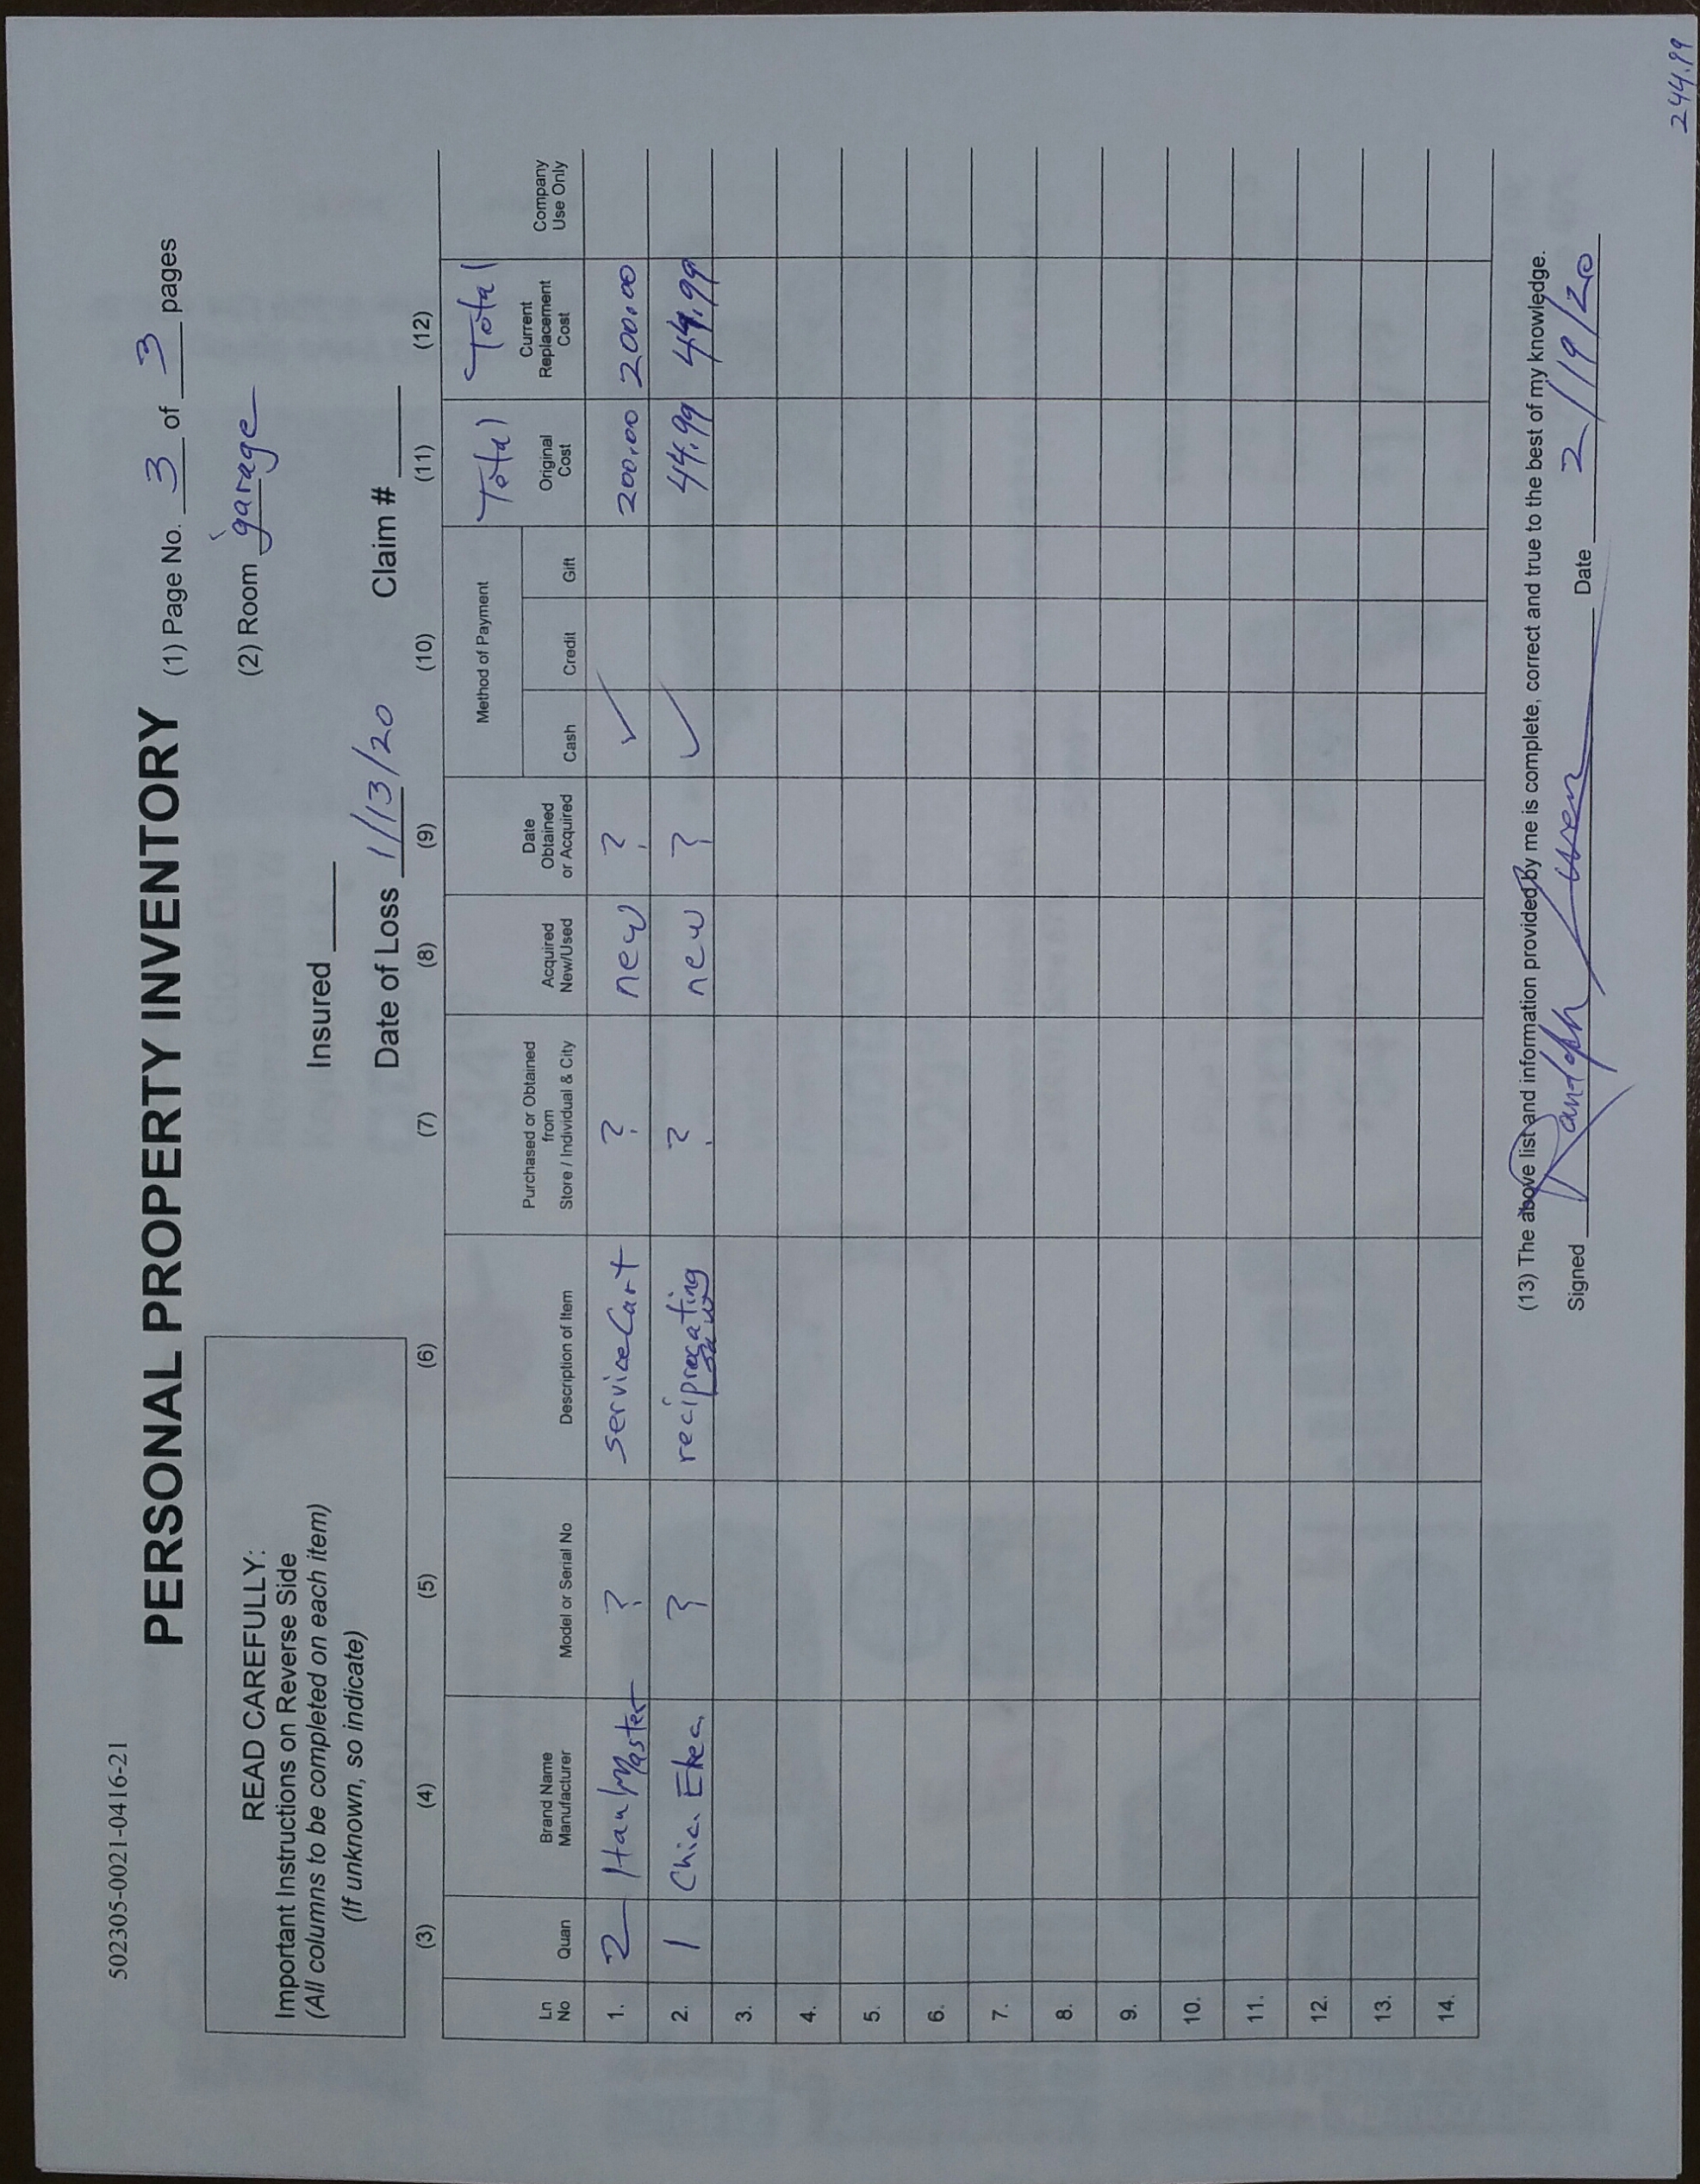 502305-0021-0416-21
PERSONAL PROPERTY INVENTORY
(1) Page No. 3 of 3 pages
(2) Room garage
READ CAREFULLY:
Important Instructions on Reverse Side
(All columns to be completed on each item)
(If unknown, so indicate)
Insured
Date of Loss 1/13/20 Claim #
(3) (4) (5) (6) (7) (8) (9) (10) (11) (12)
Total Total
Method of Payment
Ln No Quan Brand Name Manufacturer Model or Serial No Description of Item Purchased or Obtained from Store / Individual & City Acquired New/Used Date Obtained or Acquired Cash Credit Gift Original Cost Current Replacement Cost Company Use Only
1. 2 HaulMaster ? service Cart ? new ? ✓ 200.00 200.00
2. 1 Chic. Elec. ? reciprocating saw ? new ? ✓ 44.99 44.99
3.
4.
5.
6.
7.
8.
9.
10.
11.
12.
13.
14.
(13) The above list and information provided by me is complete, correct and true to the best of my knowledge.
Signed Randolph Date 2/19/20
244.99